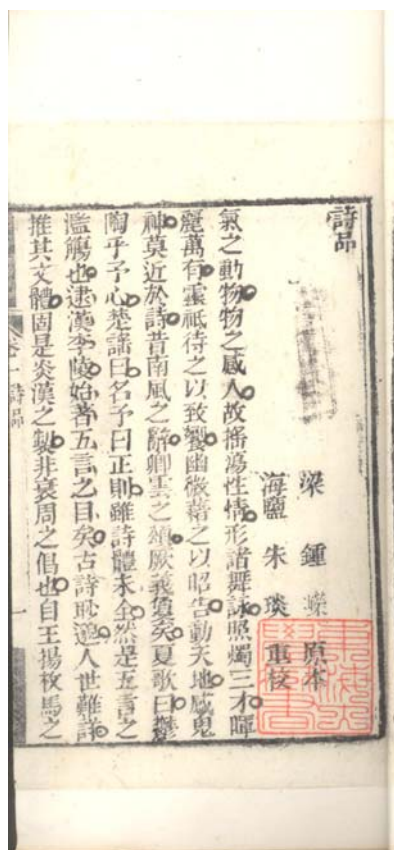 詩品
梁 鍾嶸 原本
海鹽 朱琰 重校
氣之動物物之感人故搖蕩性情形諸舞詠照燭三才暉
麗萬有靈祇待之以致饗幽微藉之以昭告動天地感鬼
神莫近於詩昔南風之辭卿雲之頌厥義夐矣夏歌曰鬱
陶乎予心楚謡曰名予曰正則雖詩體未全然是五言之
濫觴也逮漢李陵始著五言之目矣古詩眇邈人世難詳
推其文體固是炎漢之製非衰周之倡也自王揚枚馬之
卷一 詩品
一